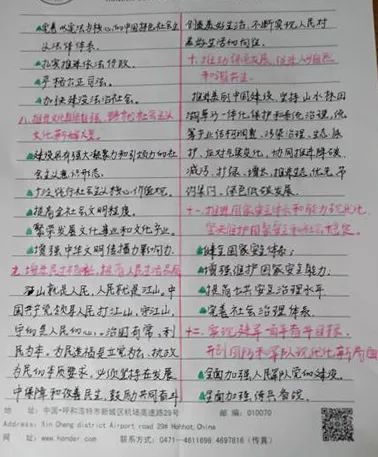 ▲完善以宪法为核心的中国特色社会主
义法律体系。
▲扎实推进依法行政。
▲严格公正司法。
▲加快建设法治社会。
八、推进文化自信自强,铸就社会主义
文化新辉煌。
▲建设具有强大凝聚力和引领力的社
会主义意识形态。
▲广泛践行社会主义核心价值观。
▲提高全社会文明程度。
▲繁荣发展文化事业和文化产业。
▲增强中华文明传播力影响力。
九、增进民生福祉,提高人民生活品质
江山就是人民,人民就是江山。中
国共产党领导人民打江山,守江山,
守的是人民的心。治国有常,利
民为本。为民造福是立党为公、执政
为民的本质要求。必须坚持在发展
中保障和改善民生,鼓励共同奋斗
创造美好生活,不断实现人民对
美好生活的向往。
十、推动绿色发展,促进人与自然
和谐共生。
推进美丽中国建设,坚持山水林田
湖草沙一体化保护和系统治理,统
筹产业结构调整、污染治理、生态保
护、应对气候变化,协同推进降碳、
减污、扩绿、增长,推进生态优先、节
约集约、绿色低碳发展。
十一、推进国家安全体系和能力现代化,
坚决维护国家安全和社会稳定。
▲健全国家安全体系;
▲增强维护国家安全能力;
▲提高公共安全治理水平
▲完善社会治理体系。
十二、实现建军一百年奋斗目标,
开创国防和军队现代化新局面
▲全面加强人民军队党的建设。
▲全面加强练兵备战。
地 址:中国·呼和浩特市新城区机场高速路29号 邮 编:010070
Address: Xin Cheng district Airport road 29# Hohhot.China
网 址:www.honder.com 联系方式:0471-4611698 4697816(传真)